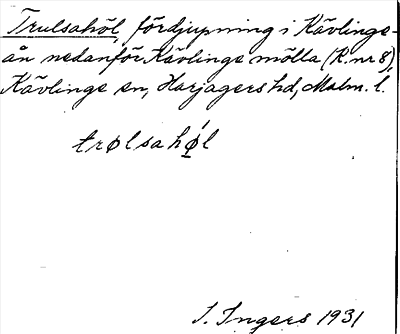 Trulsahöl, fördjupning i Kävlinge-
ån nedanför Kävlinge mölla (R. nr 8),
Kävlinge sn, Harjagers hd, Malm. l.
trølsahǿ̲l
I. Ingers 1931